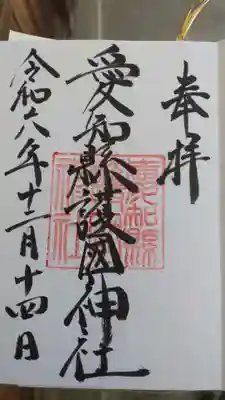 奉拝
愛知縣護國神社
令和六年十二月十四日